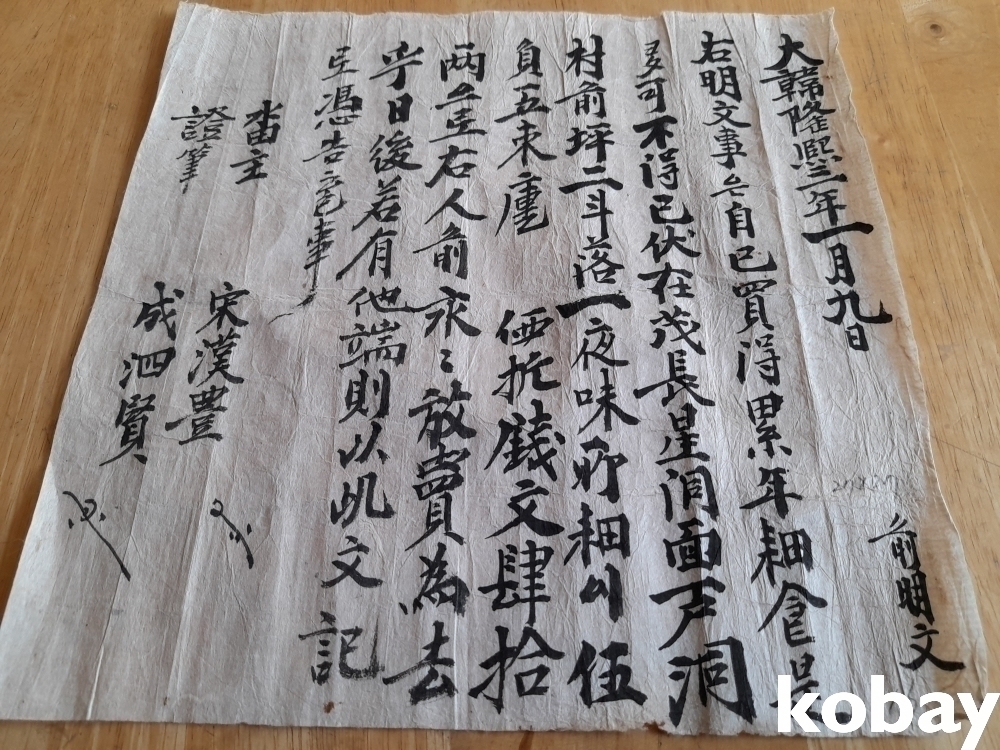 大韓隆熙三年一月九日
前明文
右明文事段自己買得累年耕食是
多可不得已伏在茂長星洞面戶洞
村前坪二斗落一夜味所耕卜伍
負五束㢱
價折錢文肆拾
兩
右人前永々放賣為去
乎日後若有他端則以此文記
憑告官事
畓主
宋漢豊
證筆
成泗賢
kobay